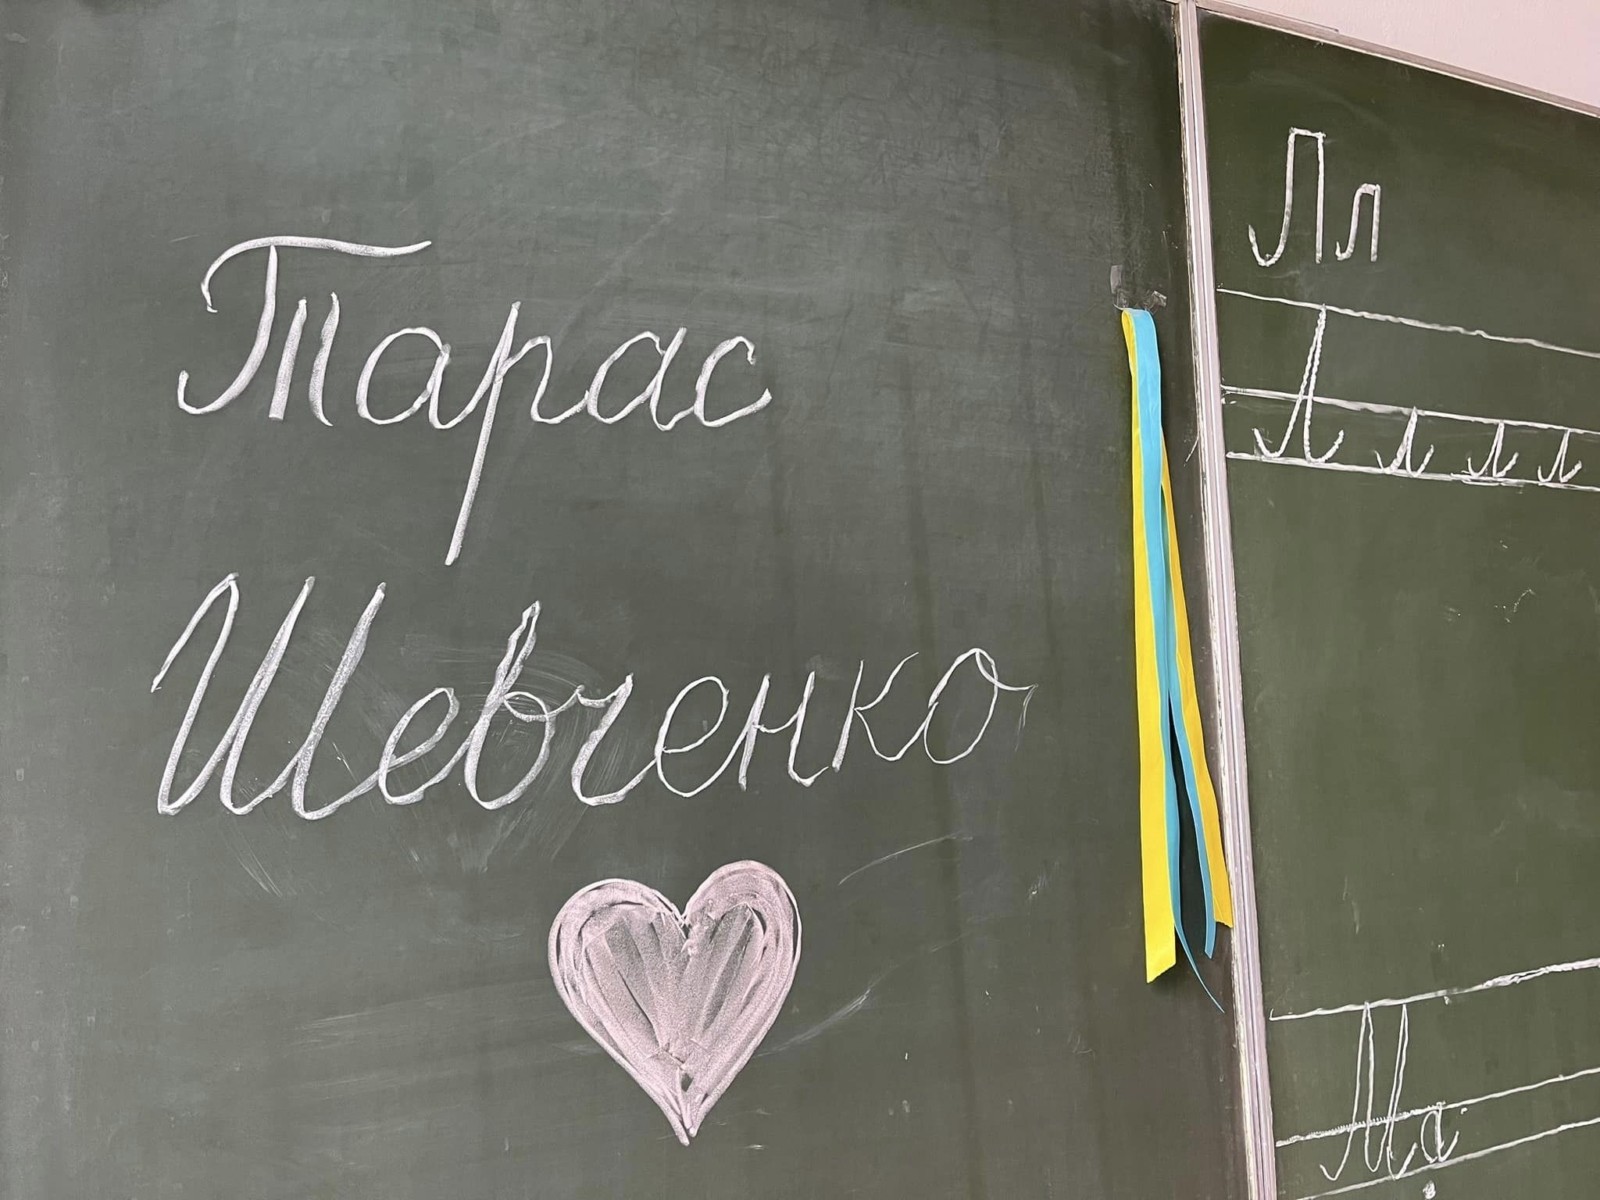 Тарас
Шевченко
Лл
Л л л л
Ма